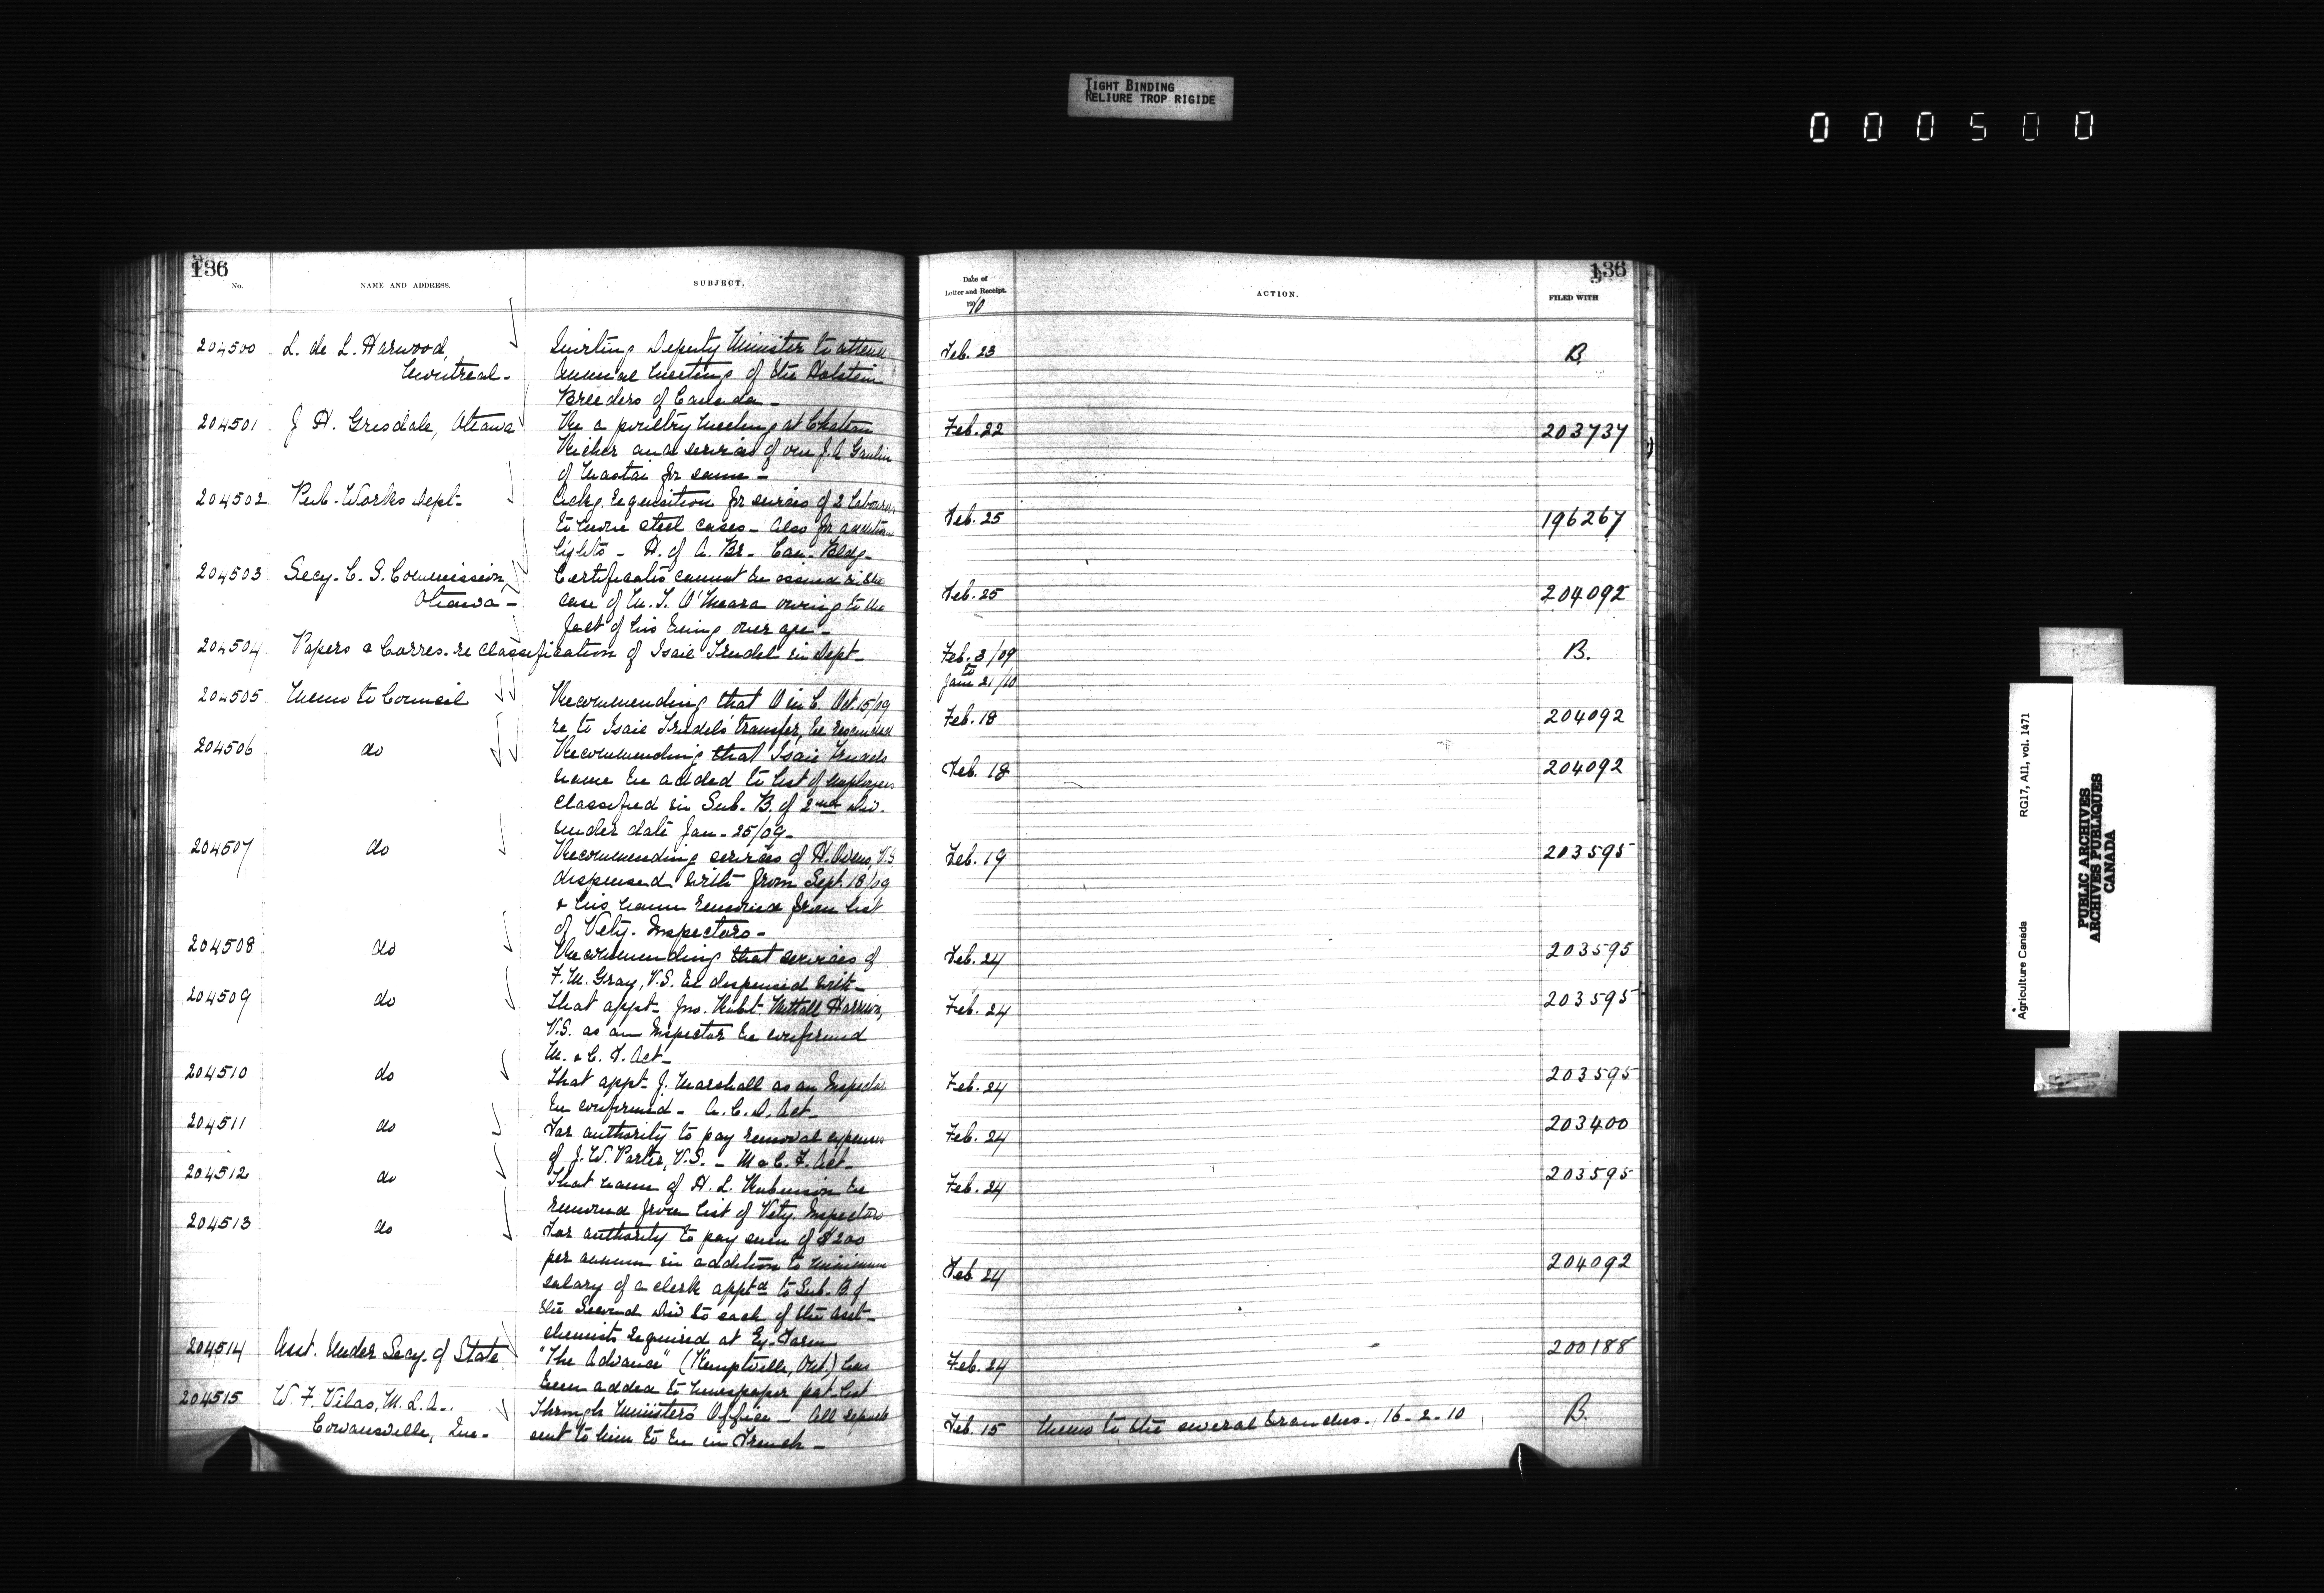 TIGHT BINDING
RELIURE TROP RIGIDE
000500
136
No.
NAME AND ADDRESS.
SUBJECT.
Date of
Letter and Receipt.
1910
ACTION.
FILED WITH
136
204500 L. de L. Harwood, Inviting Deputy Minister to attend Feb. 23 B.
Montreal - Annual Meeting of the Holstein
Breeders of Canada -
204501 J. H. Grisdale, Ottawa Re a poultry meeting at Chateau Feb. 22 203737
Richer and services of one J. A. Gaulin
of Mastai for same -
204502 Pub. Works Dept. Ackg. requisition for services of 2 labourers Feb. 25 196267
to move steel cases - Also for addition
lights - H. of A. Br. Can. Bldg -
204503 Secy. C. S. Commission, Certificates cannot be issued in the Feb. 25 204092
Ottawa - case of M. J. O'Meara owing to the
fact of his being over age -
204504 Papers & Corres. re classification of Isaie Trudel in Dept - Feb. 3/09 B.
to
Jan. 21/10
204505 Memo to Council Recommending that O in C. Oct. 15/09 Feb. 18 204092
re to Isaie Trudel's transfer, be rescinded
204506 do Recommending that Isaie Trudel's Feb. 18 204092
name be added to list of employees
classified in Sub. B. of 2nd Div.
under date Jan. 25/09 -
204507 do Recommending services of H. Owens, V.S. Feb. 19 203595
dispensed with from Sept. 18/09
& his name removed from list
of Vety. Inspectors -
204508 do Recommending that services of Feb. 24 203595
F. M. Gray, V.S. be dispensed with -
204509 do That appt. Jno. Robt. Nuttall Harrison, Feb. 24 203595
V.S. as an Inspector be confirmed
M. & C. F. Act -
204510 do That appt. J. Marshall as an Inspector Feb. 24 203595
be confirmed - A. C. D. Act -
204511 do For authority to pay removal expenses Feb. 24 203400
of J. W. Porter, V.S. - M & C. F. Act -
204512 do That name of H. L. Robinson be Feb. 24 203595
removed from list of Vety. Inspectors
204513 do For authority to pay sum of $200 Feb 24 204092
per annum in addition to minimum
salary of a clerk apptd to Sub. B of
the Second Div to each of the asst -
chemists required at Ex. Farm
204514 Asst. Under Secy. of State "The Advance" (Kemptville, Ont.) has Feb. 24 200188
been added to newspaper pat. list
204515 W. F. Vilas, M.L.A. Through Ministers Office - All reports Feb. 15 Memo to the several branches. 16-2-10 B.
Cowansville, Que - sent to him to be in French -
Agriculture Canada RG17, AII, vol. 1471
PUBLIC ARCHIVES
ARCHIVES PUBLIQUES
CANADA